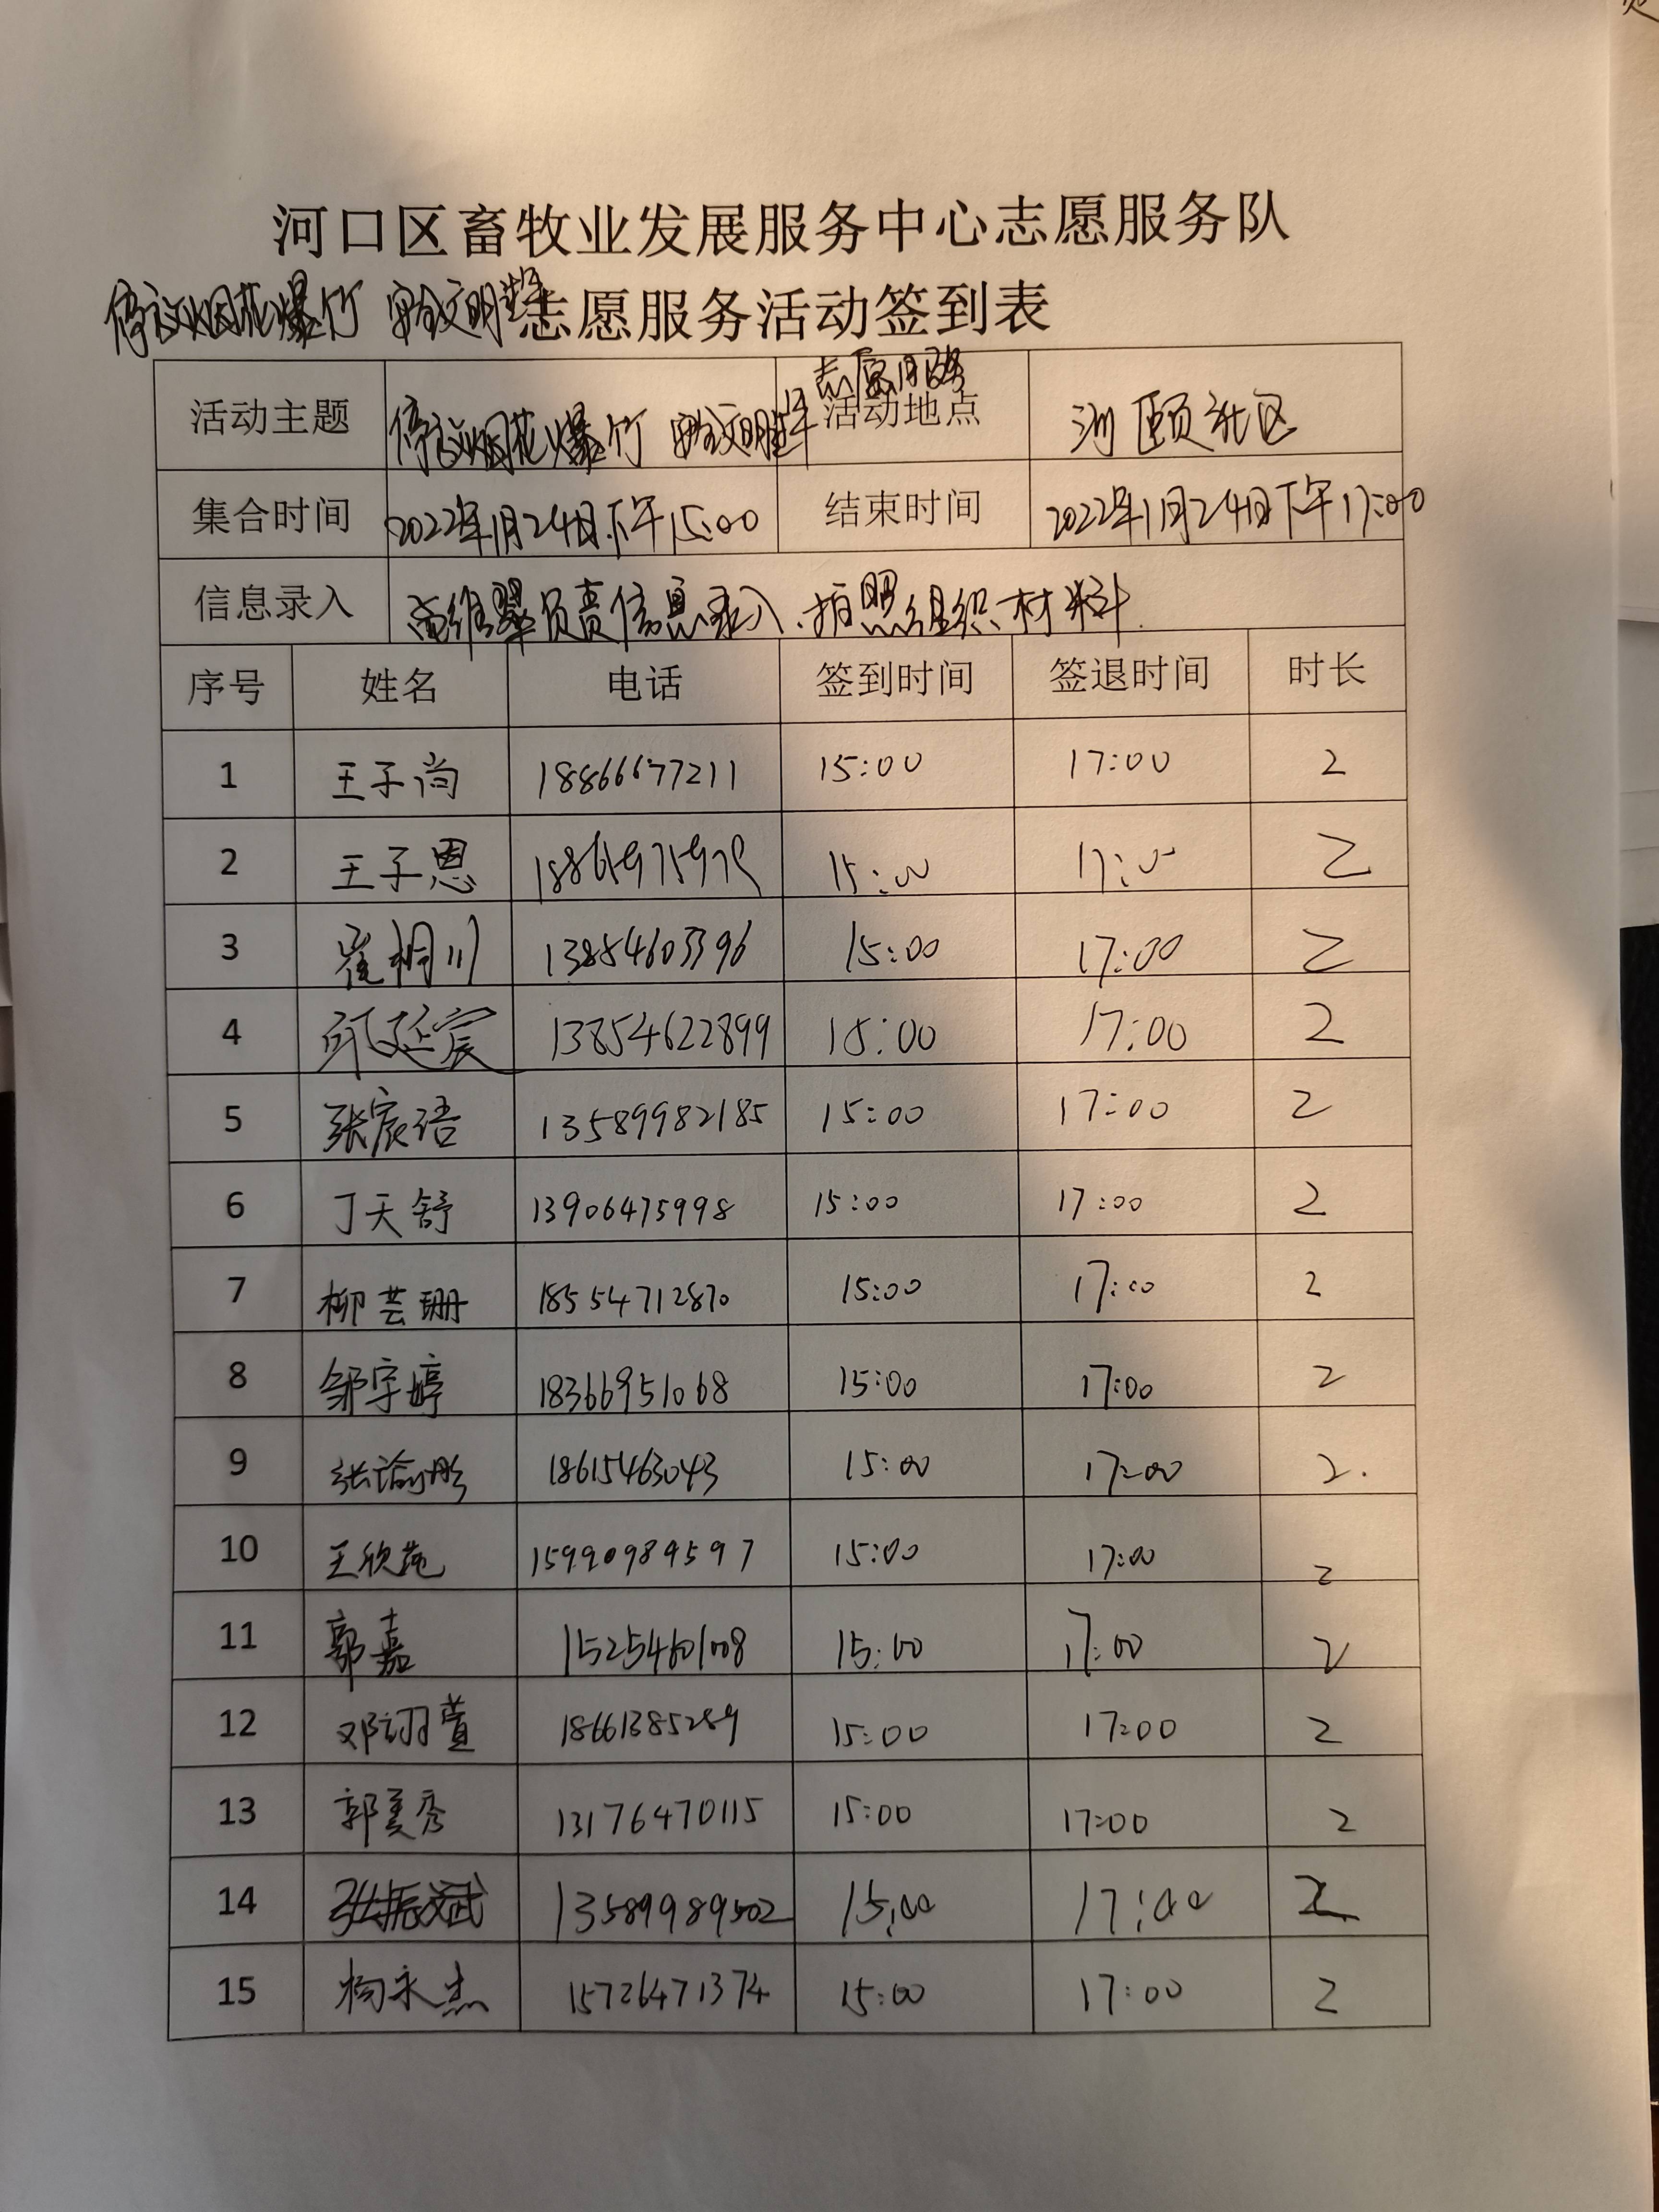 河口区畜牧业发展服务中心志愿服务队
烟花爆竹 文明 志愿服务活动签到表
活动主题 烟花爆竹 文明 志愿服务 活动地点 河颐社区
集合时间 2022年1月24日下午15:00 结束时间 2022年1月24日下午17:00
信息录入 负责信息录入、拍照组织材料
序号 姓名 电话 签到时间 签退时间 时长
1 王子尚 18866677211 15:00 17:00 2
2 王子恩 15:00 17:00 2
3 崔桐川 13854603396 15:00 17:00 2
4 邱延宸 13854622899 15:00 17:00 2
5 张宸语 13589982185 15:00 17:00 2
6 丁天舒 13906475998 15:00 17:00 2
7 柳芸珊 18554712870 15:00 17:00 2
8 邹宇婷 18366951068 15:00 17:00 2
9 张瑜彤 18615463043 15:00 17:00 2.
10 王欣苑 15990989597 15:00 17:00 2
11 郭嘉 15254601008 15:00 17:00 2
12 邓诩萱 18661385289 15:00 17:00 2
13 郭美秀 13176470115 15:00 17:00 2
14 张振斌 13589989502 15:00 17:00 2
15 杨永杰 15726471374 15:00 17:00 2